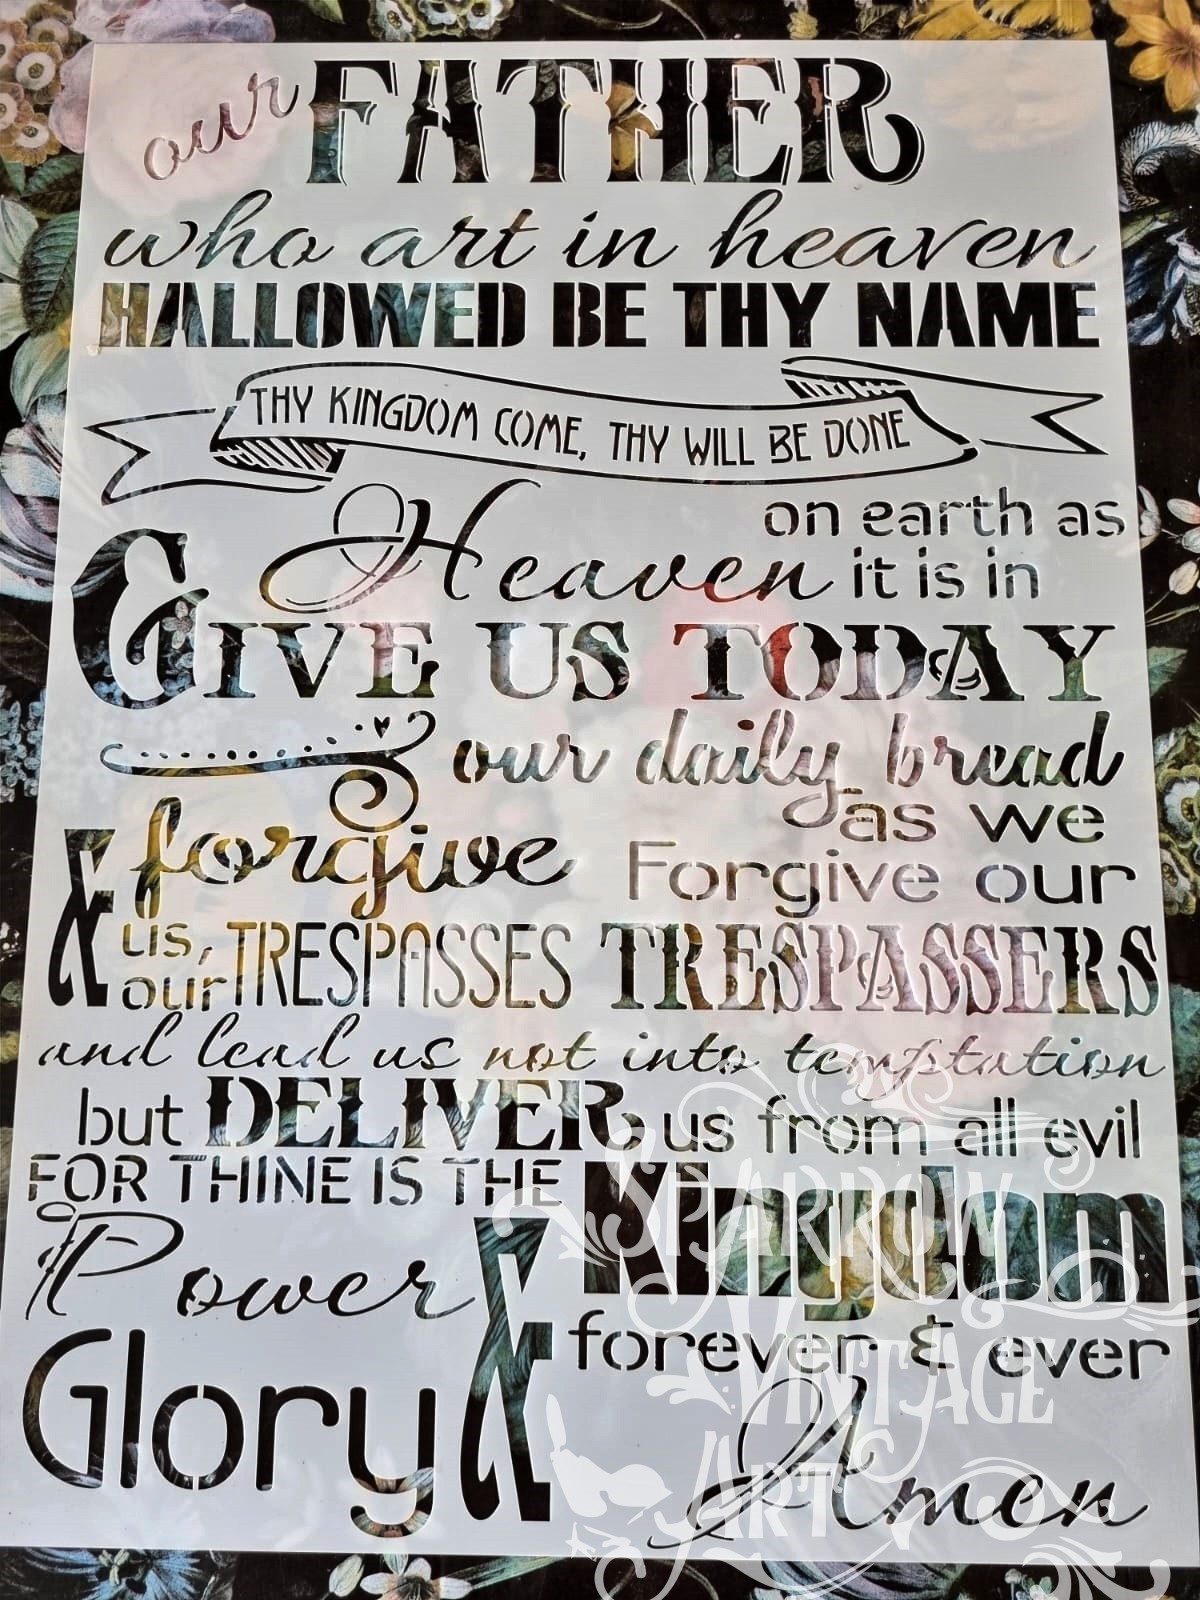 our FATHER
who art in heaven
HALLOWED BE THY NAME
THY KINGDOM COME, THY WILL BE DONE
on earth as
Heaven it is in
GIVE US TODAY
our daily bread
& forgive as we
Forgive our
us,
our TRESPASSES TRESPASSERS
and lead us not into temptation
but DELIVER us from all evil
FOR THINE IS THE Kingdom
Power &
Glory
forever & ever
Amen
SPARROW
VINTAGE
ART